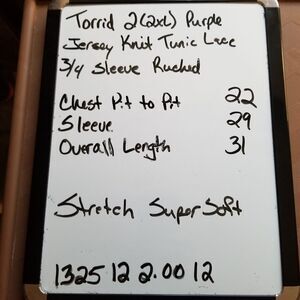 Torrid 2(2xL) Purple
Jersey Knit Tunic Lace
3/4 Sleeve Ruched
Chest Pit to Pit 22
Sleeve 29
Overall Length 31
Stretch Super Soft
1325 12 2.00 12